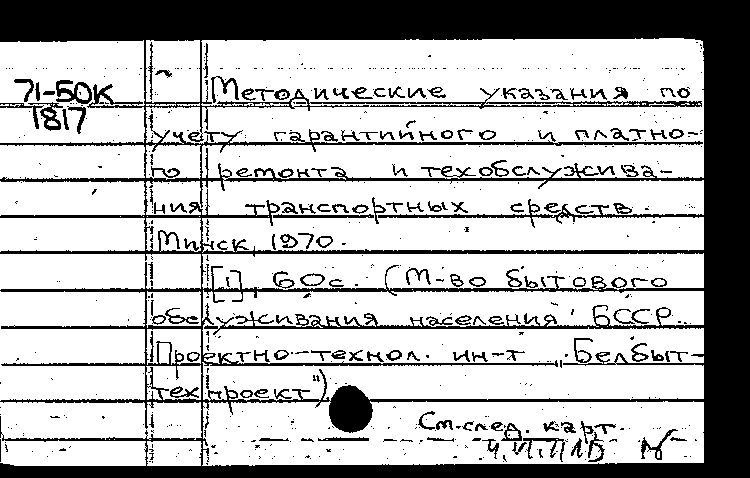 71-50К
1817
Методические указания по
учету гарантийного и платно-
го ремонта и техобслужива-
ния транспортных средств.
Минск, 1970.
[1], 60с. (М-во бытового
обслуживания населения БССР.
Проектно-технол. ин-т „Белбыт-
техпроект")
См.след. карт.